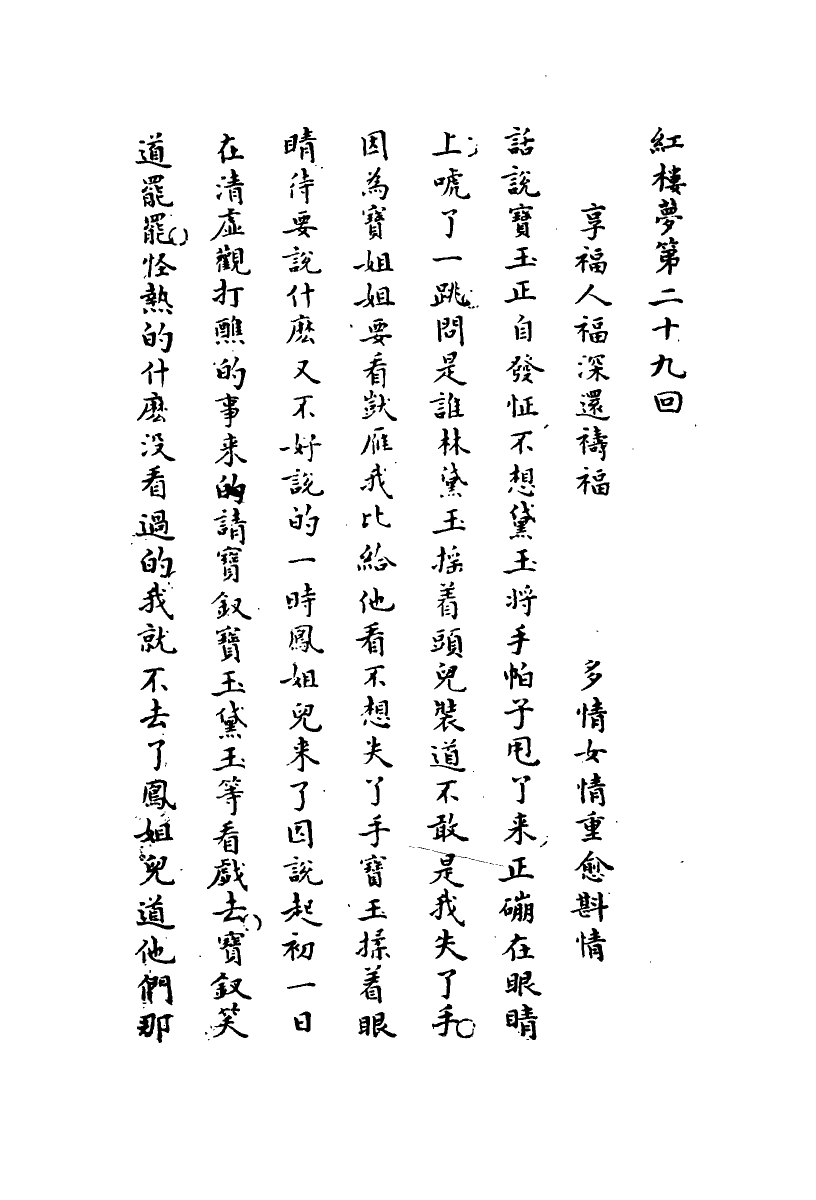 紅樓夢第二十九回
享福人福深還禱福　多情女情重愈斟情
話說寶玉正自發怔不想黛玉將手帕子甩了來正磞在眼睛
上唬了一跳問是誰林黛玉搖着頭兒裝道不敢是我失了手
因為寶姐姐要看獃雁我比給他看不想失了手寶玉揉着眼
睛待要說什麽又不好說的一時鳳姐兒来了因說起初一日
在清虛觀打醮的事来的請寶釵寶玉黛玉等看戲去寶釵笑
道罷罷怪熱的什麽没看過的我就不去了鳳姐兒道他們那